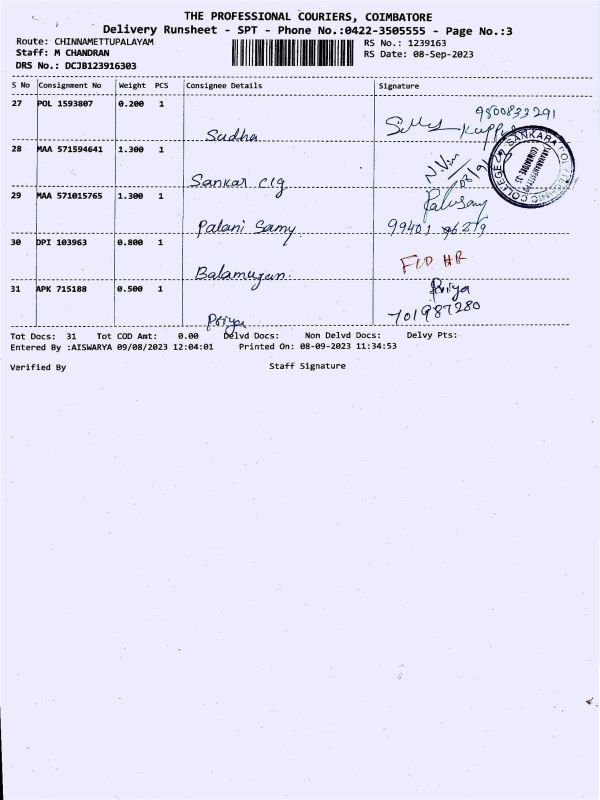 THE PROFESSIONAL COURIERS, COIMBATORE
Delivery Runsheet - SPT - Phone No.:0422-3505555 - Page No.:3
Route: CHINNAMETTUPALAYAM
RS No.: 1239163
Staff: M CHANDRAN
RS Date: 08-Sep-2023
DRS No.: DCJB123916303
S No Consignment No Weight PCS Consignee Details Signature
27 POL 1593807 0.200 1
9800833291
Sudha
28 MAA 571594641 1.300 1
SANKARA POLYTECHNIC COLLEGE
Sankar clg
29 MAA 571015765 1.300 1
Palani Samy
99401 96279
30 DPI 103963 0.800 1
FID HR
Balamurgan.
31 APK 715188 0.500 1
Priya
Priya
701987280
Tot Docs: 31 Tot COD Amt: 0.00 Delvd Docs: Non Delvd Docs: Delvy Pts:
Entered By :AISWARYA 09/08/2023 12:04:01 Printed On: 08-09-2023 11:34:53
Verified By Staff Signature